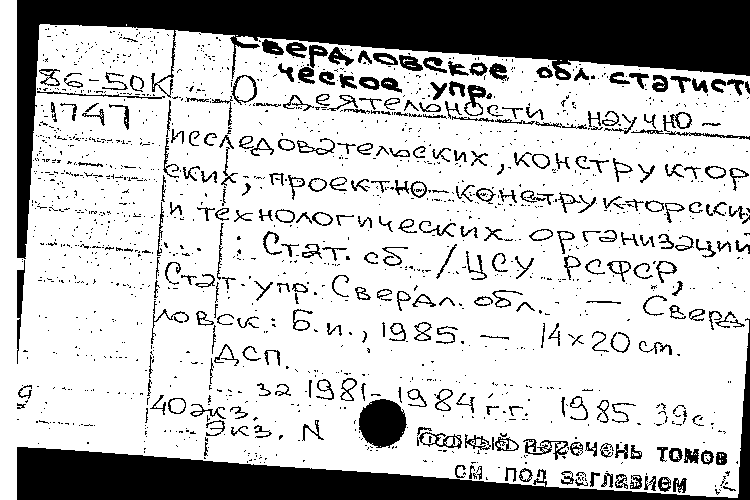 Свердловское обл. статисти
ческое упр.
86-50К
1747
О деятельности научно-
исследовательских, конструктор
ских, проектно-конструкторских
и технологических организаций
... : Стат. сб. / ЦСУ РСФСР,
Стат. упр. Свердл. обл. — Сверд
ловск: Б.и., 1985. — 14×20 см.
ДСП.
... за 1981-1984 г.г. 1985. 39с.
40 экз.
Экз. N
перечень томов
см. под заглавием